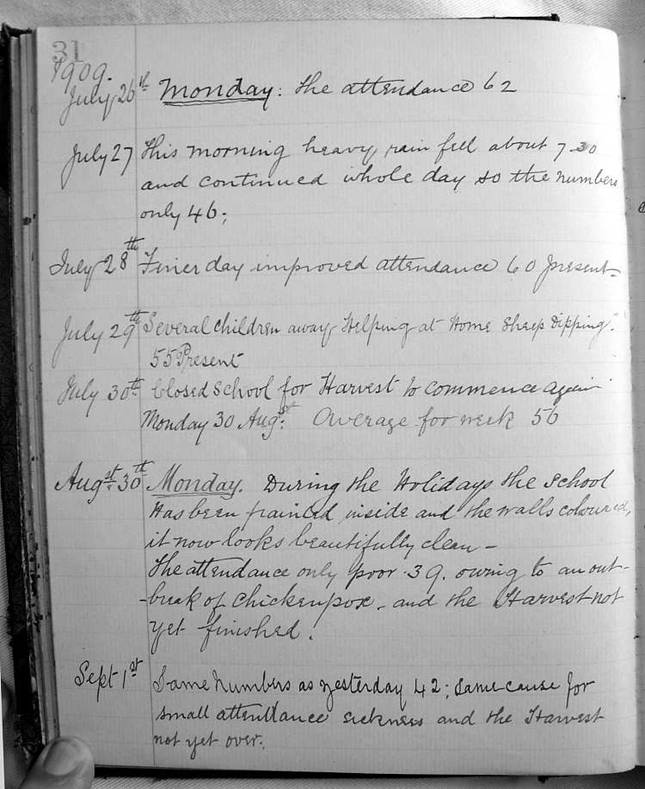 31
1909.
July 26th Monday: The attendance 62
July 27 This morning heavy rain fell about 7-30
and continued whole day so the numbers
only 46;
July 28th Finer day improved attendance 60 present-
July 29th Several children away Helping at Home Sheep Dipping.
55 Present
July 30th Closed School for Harvest to commence again
Monday 30 Augst. Average for week 56
Augst 30th Monday. During the Holidays the School
Has been painted inside and the walls coloured,
it now looks beautifully clean -
The attendance only poor 39. owing to an out-
-break of Chickenpox. and the Harvest not
yet finished.
Sept 1st Same Numbers as yesterday 42; same cause for
small attendance sickness and the Harvest
not yet over.